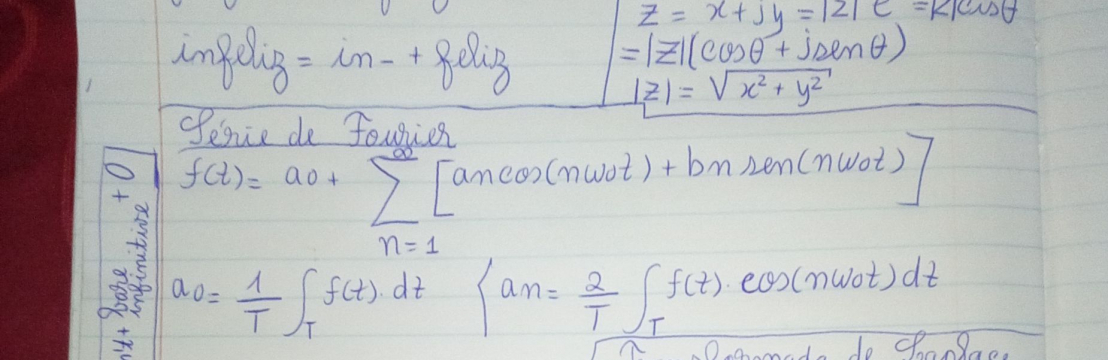 infeliz = in- + feliz
z = x + jy = |z| e = |z|cisθ
= |z|(cosθ + jsenθ)
|z| = √x² + y²
Série de Fourier
f(t) = a0 + ∞∑n=1 [an cos(nw0t) + bn sen(nw0t)]
a0 = 1/T ∫T f(t). dt { an = 2/T ∫T f(t). cos(nw0t) dt
n't + bare
infinitive + O
de Laplace